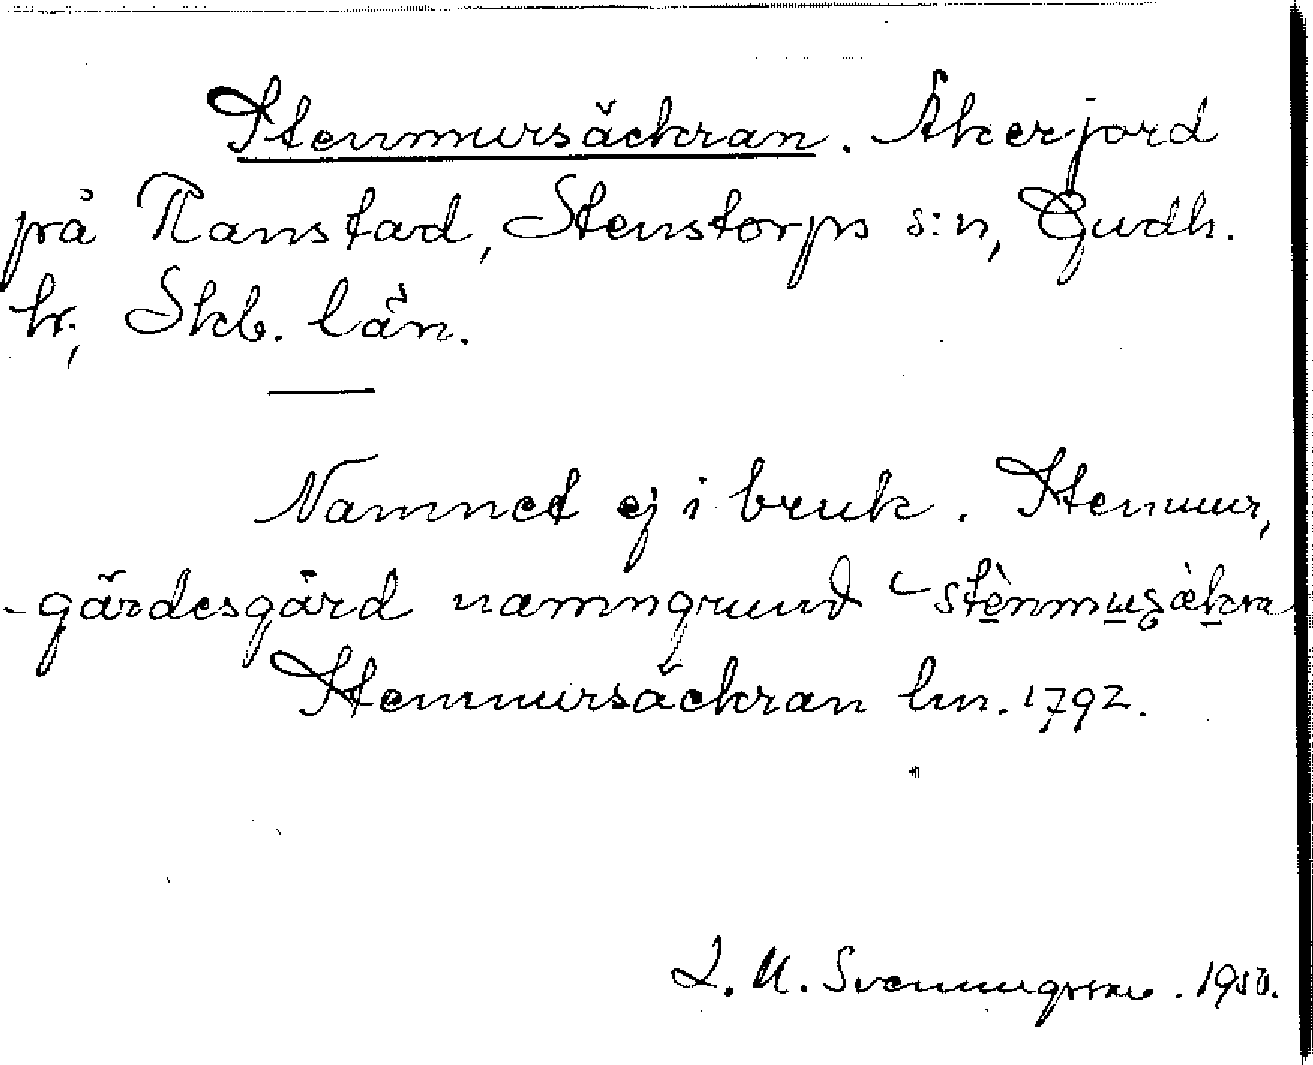 Stenmursäckran. Åkerjord
på Ranstad, Stenstorps s:n, Gudh.
hr, Skb. län.
Namnet ej i bruk. Stenmur,
-gärdesgård namngrund stènmusàkra
Stenmursåckran lm. 1792.
L. M. Svenungsson. 1950.